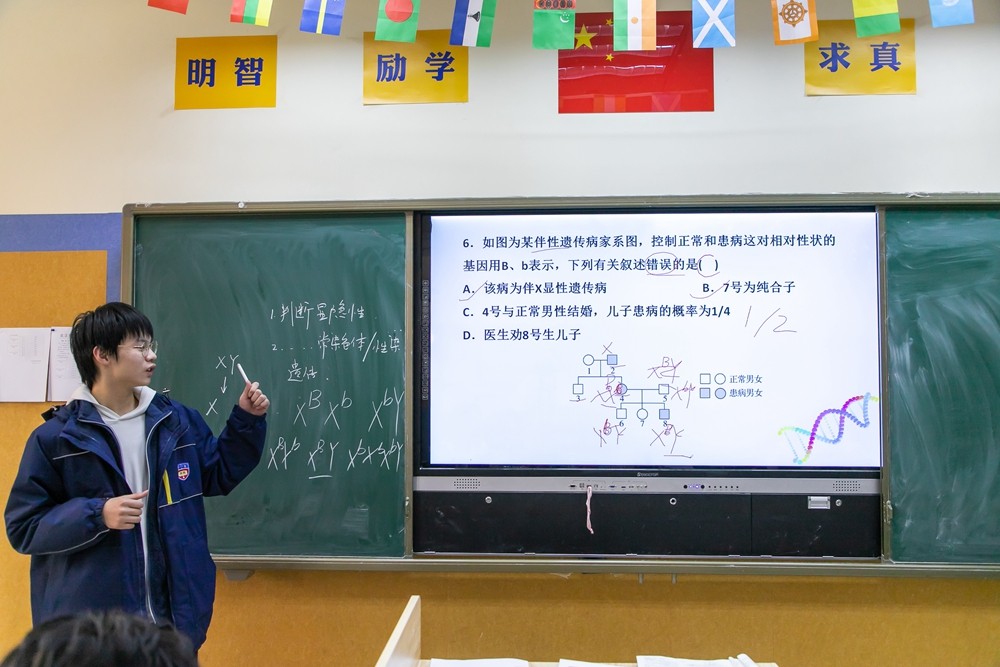 明智
励学
求真
6. 如图为某伴性遗传病家系图，控制正常和患病这对相对性状的
基因用B、b表示，下列有关叙述错误的是( )
A. 该病为伴X显性遗传病
B. 7号为纯合子
C. 4号与正常男性结婚，儿子患病的概率为1/4
1/2
D. 医生劝8号生儿子
1
2
3
4
5
6
7
8
正常男女
患病男女
1.判断显隐性
2.....常染色体/性染
遗传.
XY
X
X^B X^b X^bY
X^BX^b X^BY X^bX^b X^bY